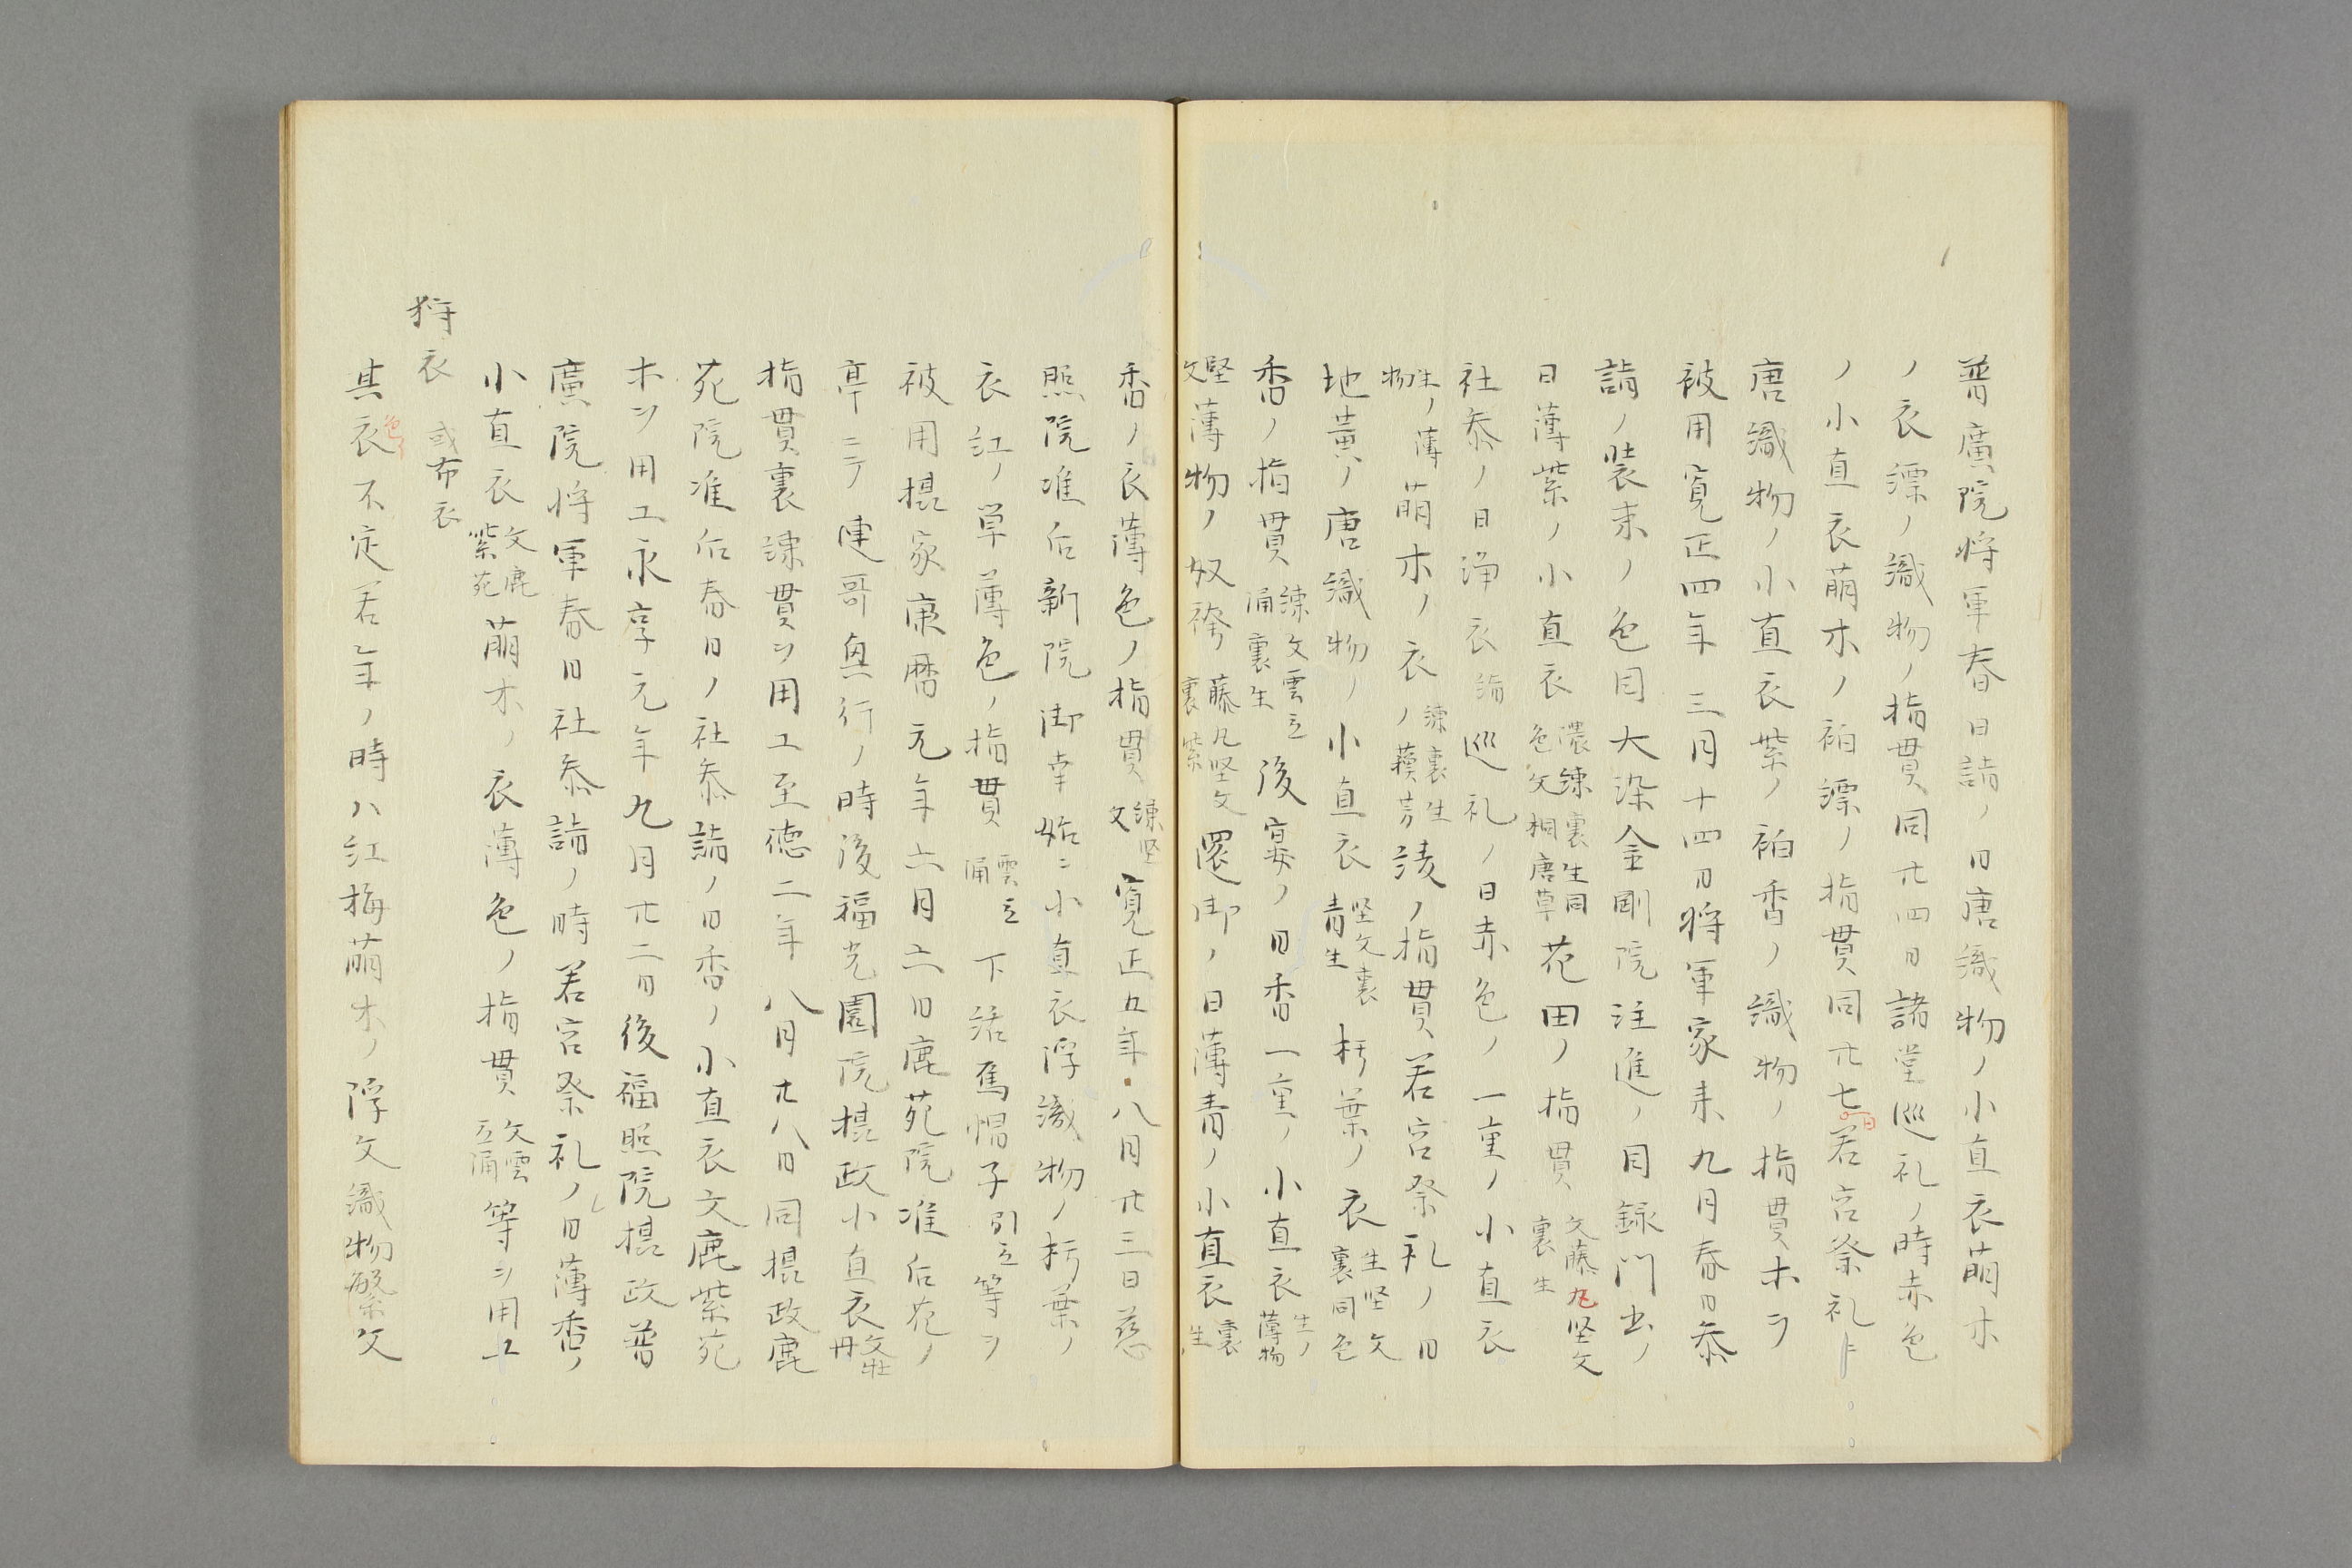 普廣院将軍春日詣ノ日唐織物ノ小直衣萠木
ノ衣漂ノ織物ノ指貫同廿四日諸堂巡礼ノ時赤色
ノ小直衣萠木ノ袙漂ノ指貫同廿七日若宮祭礼ニ
唐織物ノ小直衣紫ノ袙香ノ織物ノ指貫木ヲ
被用寛正四年三月十四日将軍家来九月春日参
詣ノ装束ノ色目大染金剛院注進ノ目録門出ノ
日薄紫ノ小直衣濃練裏生同色文桐唐草花田ノ指貫文藤丸堅文裏生
社参ノ日浄衣詣巡礼ノ日赤色ノ一重ノ小直衣
生ノ薄物萠木ノ衣ノ練裏生蘓芳淩ノ指貫若宮祭礼ノ日
地黄ノ唐織物ノ小直衣堅文裏青生朽葉ノ衣生堅文裏同色
香ノ指貫練文雲立涌裏生後宴ノ日香一重ノ小直衣生ノ薄物
堅文薄物ノ奴袴藤丸堅文裏紫還御ノ日薄青ノ小直衣裏生
香ノ衣薄色ノ指貫練堅文寛正五年八月廿三日慈
照院准后新院御幸始ニ小直衣浮織物ノ朽葉ノ
衣紅ノ単薄色ノ指貫雲立涌下活烏帽子引立等ヲ
被用摂家康暦元年六月二日鹿苑院准后花ノ
亭ニテ連哥興行ノ時後福光園院摂政小直衣文牡丹
指貫裏練貫ヲ用エ至徳二年八月廿八日同摂政鹿
苑院准后春日ノ社参詣ノ日香ノ小直衣文鹿紫苑
木ヲ用エ永享元年九月廿二日後福照院摂政普
廣院将軍春日社参詣ノ時若宮祭礼ノ日薄香ノ
小直衣文鹿紫苑萠木ノ衣薄色ノ指貫文雲立涌等ヲ用エ
狩衣 或布衣
其衣色不定若年ノ時ハ紅梅萠木ノ浮文織物繁文